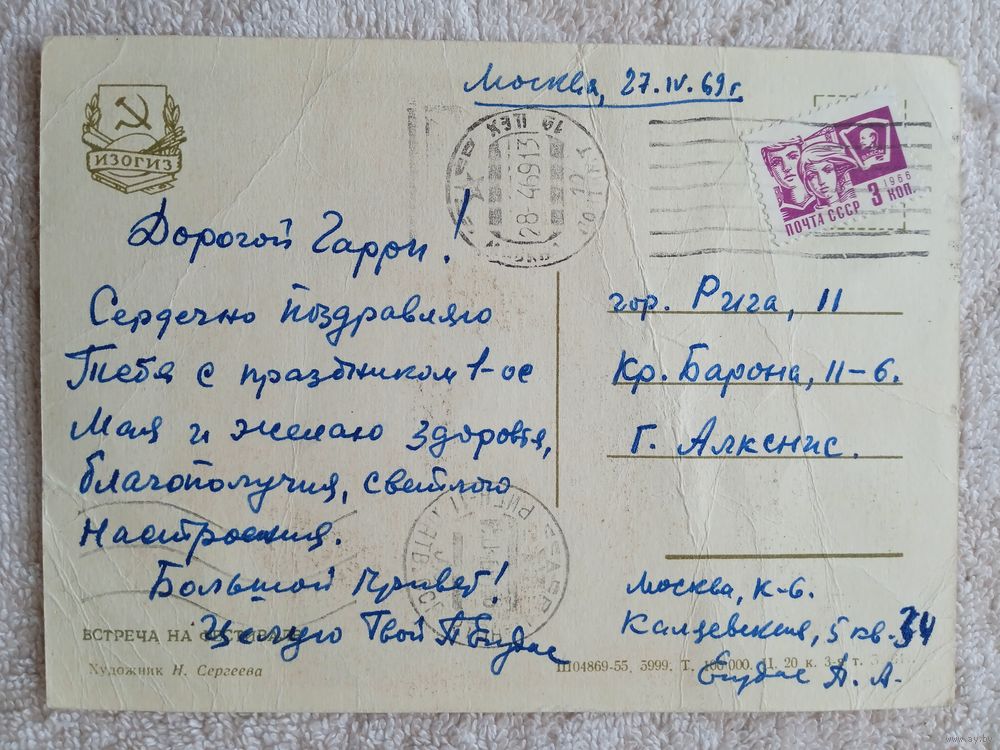 Москва, 27.IV.69г.
ИЗОГИЗ
28-4 69 13
1966
3 КОП.
ПОЧТА СССР
Дорогой Гарри!
Сердечно поздравляю
Тебя с праздником 1-ое
Мая и желаю здоровья,
благополучия, светлого
настроения.
Большой привет!
Целую Твой
гор. Рига, 11
Кр. Барона, 11-6.
Г. Алкснис.
Москва, К-6.
5 кв. 34
А. А.
ВСТРЕЧА НА
Художник Н. Сергеева
Ш04869-55. 5999. Т. 100 000. Ц. 20 к. 3-я т.
www.ay.by